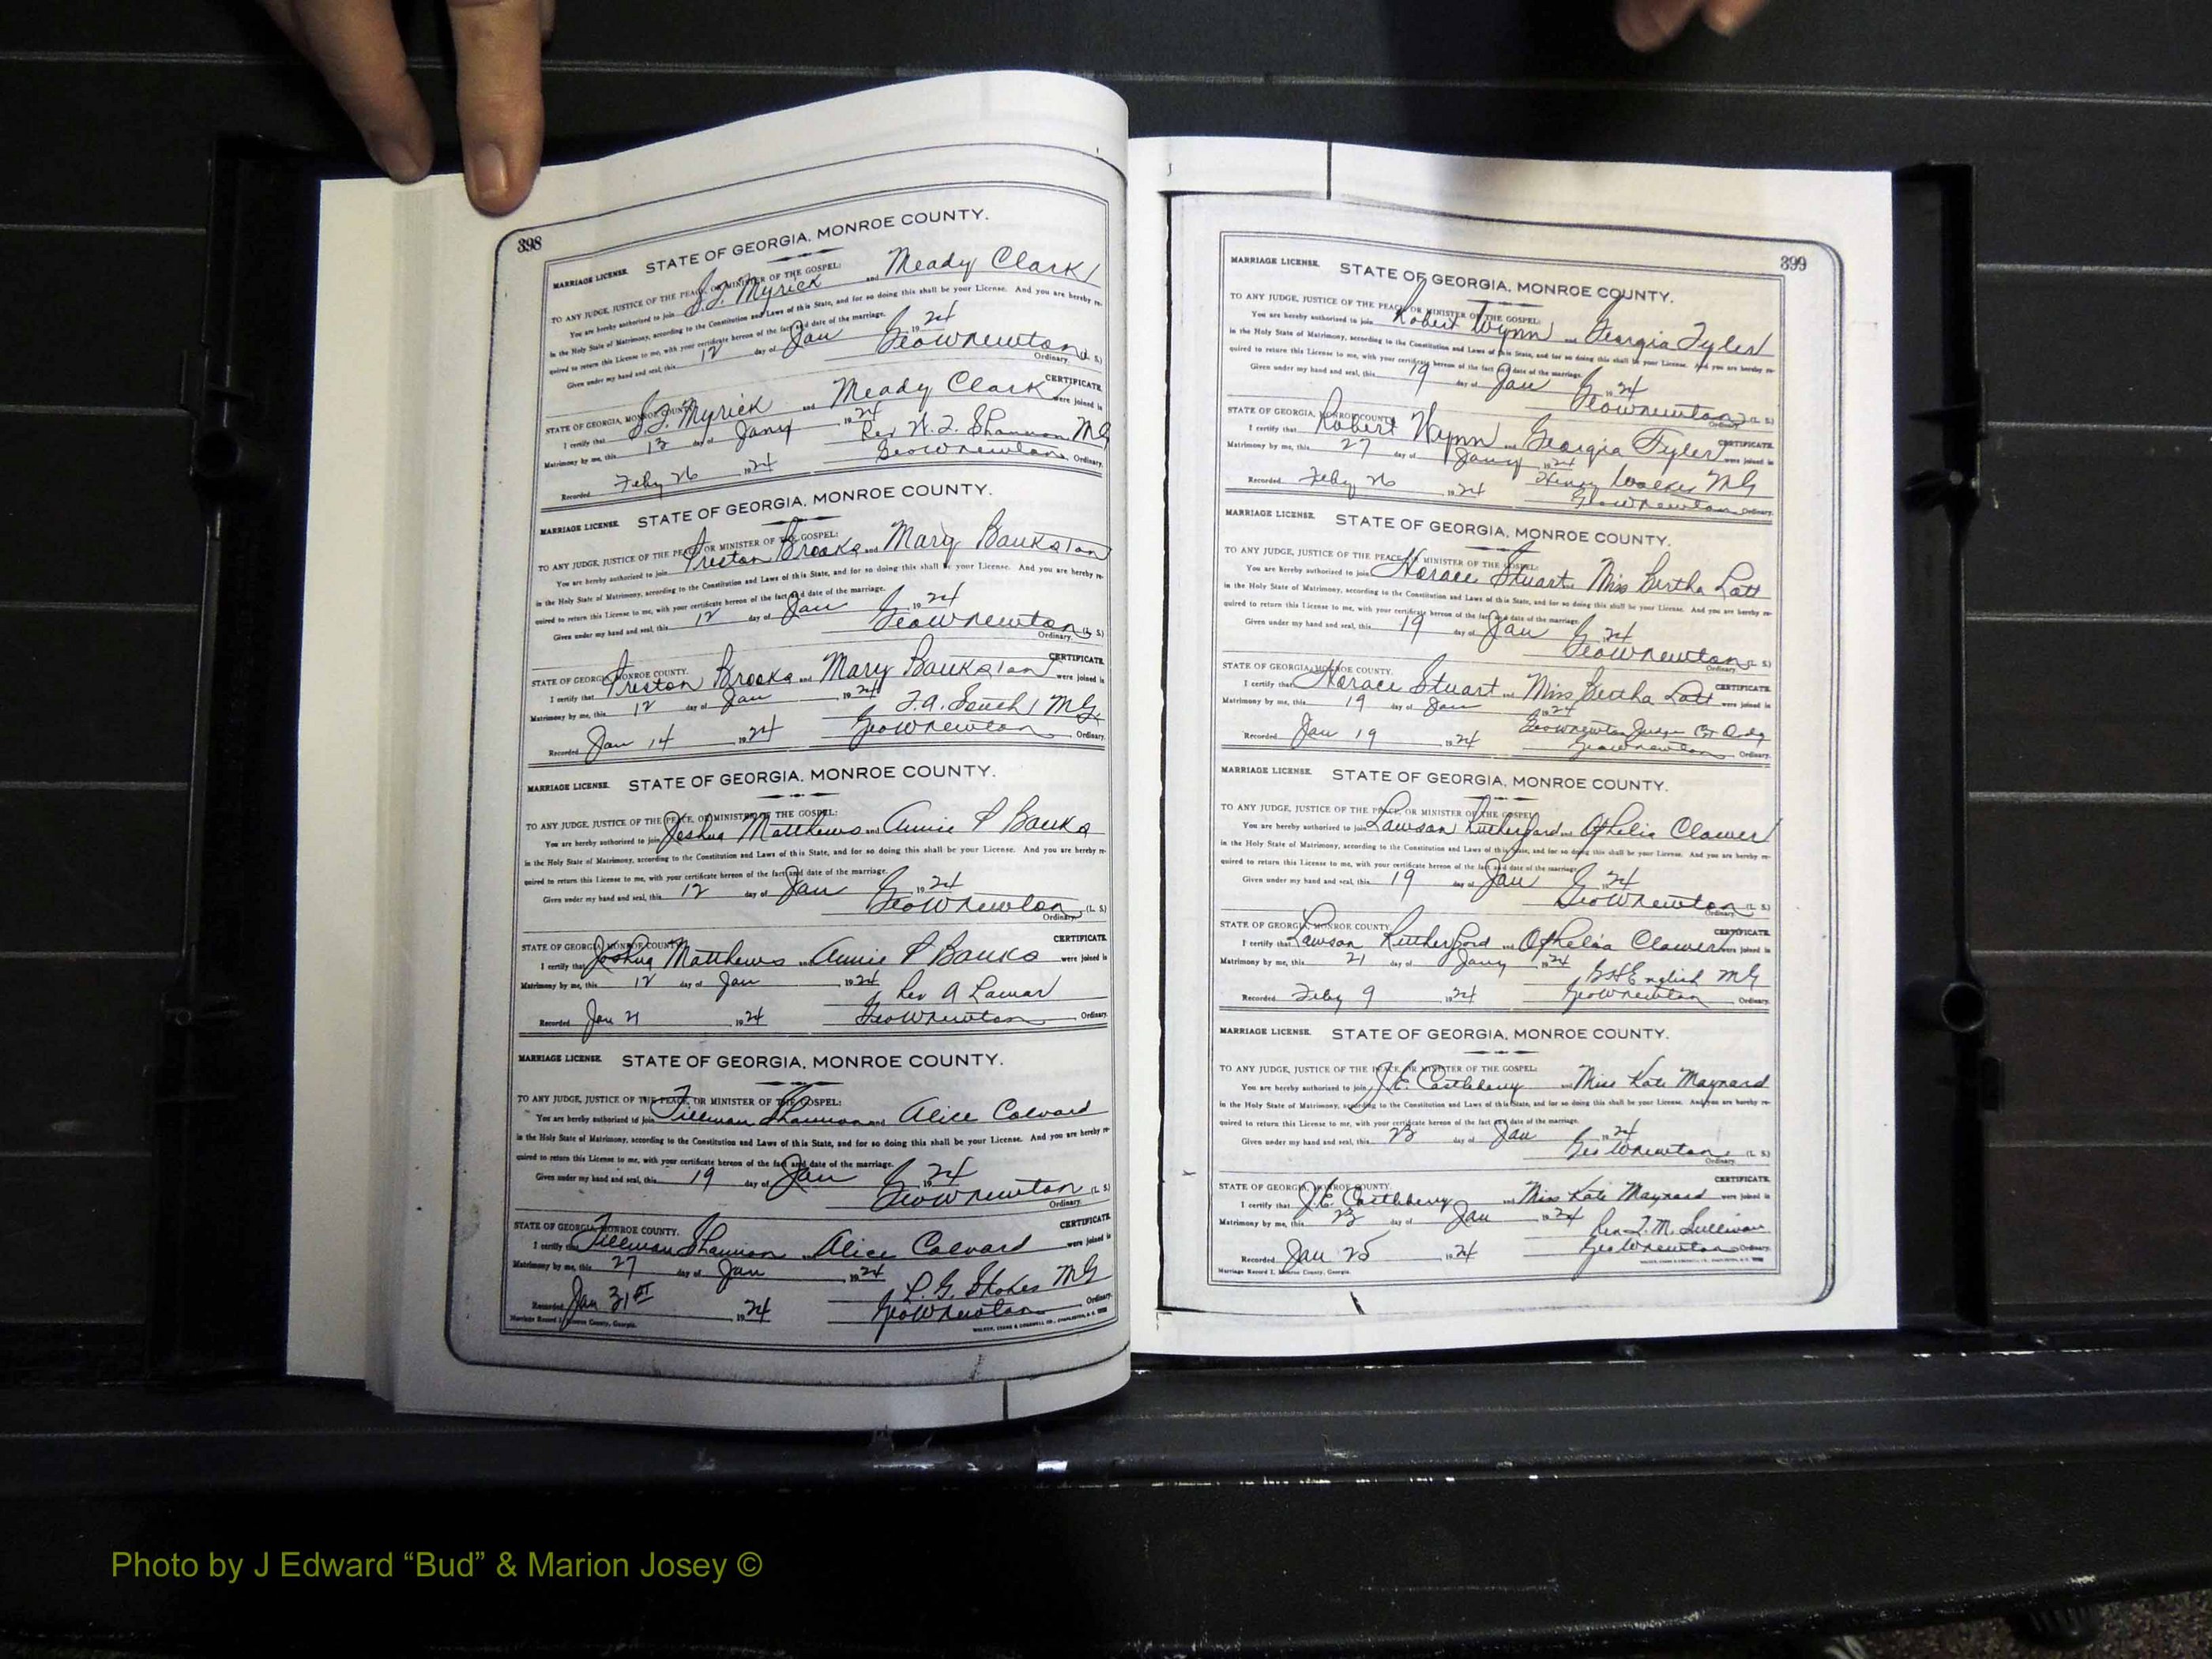 398
MARRIAGE LICENSE. STATE OF GEORGIA, MONROE COUNTY.
TO ANY JUDGE, JUSTICE OF THE PEACE, OR MINISTER OF THE GOSPEL:
You are hereby authorized to join J. J. Myrick and Meady Clark
in the Holy State of Matrimony, according to the Constitution and Laws of this State, and for so doing this shall be your License. And you are hereby re-
quired to return this License to me, with your certificate hereon of the fact and date of the marriage.
Given under my hand and seal, this 12 day of Jan 1924
Geo W Newton (L. S.)
Ordinary.
CERTIFICATE.
STATE OF GEORGIA, MONROE COUNTY.
I certify that J. J. Myrick and Meady Clark were joined in
Matrimony by me, this 13 day of Jany 1924 Rev W. J. Shannon MG
Recorded Feby 26 1924 Geo W Newton Ordinary.
MARRIAGE LICENSE. STATE OF GEORGIA, MONROE COUNTY.
TO ANY JUDGE, JUSTICE OF THE PEACE, OR MINISTER OF THE GOSPEL:
You are hereby authorized to join Preston Brooks and Mary Bankston
in the Holy State of Matrimony, according to the Constitution and Laws of this State, and for so doing this shall be your License. And you are hereby re-
quired to return this License to me, with your certificate hereon of the fact and date of the marriage.
Given under my hand and seal, this 12 day of Jan 1924
Geo W Newton (L. S.)
Ordinary.
CERTIFICATE.
STATE OF GEORGIA, MONROE COUNTY.
I certify that Preston Brooks and Mary Bankston were joined in
Matrimony by me, this 12 day of Jan 1924 MG
Recorded Jan 14 1924 Geo W Newton Ordinary.
MARRIAGE LICENSE. STATE OF GEORGIA, MONROE COUNTY.
TO ANY JUDGE, JUSTICE OF THE PEACE, OR MINISTER OF THE GOSPEL:
You are hereby authorized to join Joshua Matthews and Annie P Banks
in the Holy State of Matrimony, according to the Constitution and Laws of this State, and for so doing this shall be your License. And you are hereby re-
quired to return this License to me, with your certificate hereon of the fact and date of the marriage.
Given under my hand and seal, this 12 day of Jan 1924
Geo W Newton (L. S.)
Ordinary.
CERTIFICATE.
STATE OF GEORGIA, MONROE COUNTY.
I certify that Joshua Matthews and Annie P Banks were joined in
Matrimony by me, this 12 day of Jan 1924 Rev A Lamar
Recorded Jan 21 1924 Geo W Newton Ordinary.
MARRIAGE LICENSE. STATE OF GEORGIA, MONROE COUNTY.
TO ANY JUDGE, JUSTICE OF THE PEACE, OR MINISTER OF THE GOSPEL:
You are hereby authorized to join Tillman Shannon and Alice Calvard
in the Holy State of Matrimony, according to the Constitution and Laws of this State, and for so doing this shall be your License. And you are hereby re-
quired to return this License to me, with your certificate hereon of the fact and date of the marriage.
Given under my hand and seal, this 19 day of Jan 1924
Geo W Newton (L. S.)
Ordinary.
CERTIFICATE.
STATE OF GEORGIA, MONROE COUNTY.
I certify that Tillman Shannon and Alice Calvard were joined in
Matrimony by me, this 27 day of Jan 1924 P. G. Stokes MG
Recorded Jan 31st 1924 Geo W Newton Ordinary.
Marriage Record I, Monroe County, Georgia.
WALKER, EVANS & COGSWELL CO., CHARLESTON, S. C.
399
MARRIAGE LICENSE. STATE OF GEORGIA, MONROE COUNTY.
TO ANY JUDGE, JUSTICE OF THE PEACE, OR MINISTER OF THE GOSPEL:
You are hereby authorized to join Robert Wynn and Georgia Tyler
in the Holy State of Matrimony, according to the Constitution and Laws of this State, and for so doing this shall be your License. And you are hereby re-
quired to return this License to me, with your certificate hereon of the fact and date of the marriage.
Given under my hand and seal, this 19 day of Jan 1924
Geo W Newton (L. S.)
Ordinary.
STATE OF GEORGIA, MONROE COUNTY.
CERTIFICATE.
I certify that Robert Wynn and Georgia Tyler were joined in
Matrimony by me, this 27 day of Jany 1924 Henry Walker MG
Recorded Feby 26 1924 Geo W Newton Ordinary.
MARRIAGE LICENSE. STATE OF GEORGIA, MONROE COUNTY.
TO ANY JUDGE, JUSTICE OF THE PEACE, OR MINISTER OF THE GOSPEL:
You are hereby authorized to join Horace Stuart and Miss Bertha Lott
in the Holy State of Matrimony, according to the Constitution and Laws of this State, and for so doing this shall be your License. And you are hereby re-
quired to return this License to me, with your certificate hereon of the fact and date of the marriage.
Given under my hand and seal, this 19 day of Jan 1924
Geo W Newton (L. S.)
Ordinary.
STATE OF GEORGIA, MONROE COUNTY.
CERTIFICATE.
I certify that Horace Stuart and Miss Bertha Lott were joined in
Matrimony by me, this 19 day of Jan 1924 Geo W Newton Judge Ct Ordy
Recorded Jan 19 1924 Geo W Newton Ordinary.
MARRIAGE LICENSE. STATE OF GEORGIA, MONROE COUNTY.
TO ANY JUDGE, JUSTICE OF THE PEACE, OR MINISTER OF THE GOSPEL:
You are hereby authorized to join Lawson Rutherford and Ophelia Clower
in the Holy State of Matrimony, according to the Constitution and Laws of this State, and for so doing this shall be your License. And you are hereby re-
quired to return this License to me, with your certificate hereon of the fact and date of the marriage.
Given under my hand and seal, this 19 day of Jan 1924
Geo W Newton (L. S.)
Ordinary.
STATE OF GEORGIA, MONROE COUNTY.
CERTIFICATE.
I certify that Lawson Rutherford and Ophelia Clower were joined in
Matrimony by me, this 21 day of Jany 1924 English MG
Recorded Feby 9 1924 Geo W Newton Ordinary.
MARRIAGE LICENSE. STATE OF GEORGIA, MONROE COUNTY.
TO ANY JUDGE, JUSTICE OF THE PEACE, OR MINISTER OF THE GOSPEL:
You are hereby authorized to join J. E. Castleberry and Miss Kate Maynard
in the Holy State of Matrimony, according to the Constitution and Laws of this State, and for so doing this shall be your License. And you are hereby re-
quired to return this License to me, with your certificate hereon of the fact and date of the marriage.
Given under my hand and seal, this 23 day of Jan 1924
Geo W Newton (L. S.)
Ordinary.
STATE OF GEORGIA, MONROE COUNTY.
CERTIFICATE.
I certify that J. E. Castleberry and Miss Kate Maynard were joined in
Matrimony by me, this 23 day of Jan 1924 Rev. T. M. Sullivan
Recorded Jan 25 1924 Geo W Newton Ordinary.
Marriage Record I, Monroe County, Georgia.
Photo by J Edward “Bud” & Marion Josey ©